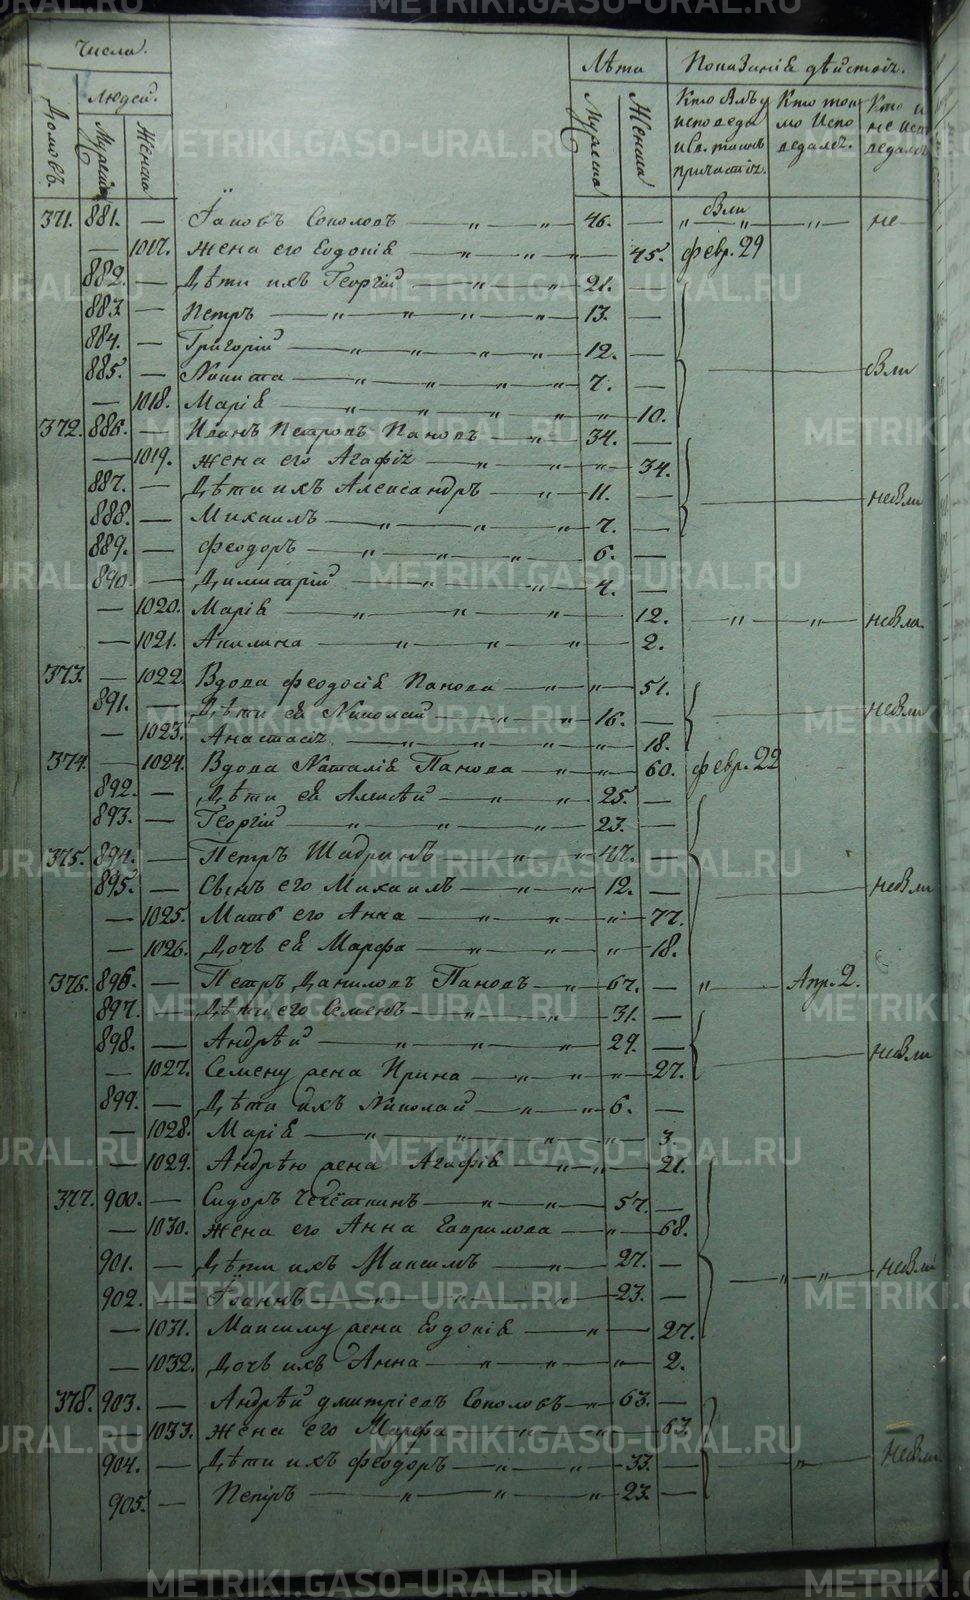 Числа.
Лѣта
Показаніе дѣйствія.
Домовъ.
Людей.
Мужеска
Женска
Мужеска
Женска
Кто былъ у исповеди и св. таинъ причастія.
Кто токмо исповедался.
Кто и не исповедался
371. 881. — Іаковъ Соколовъ — 46. — были не
— 1017. Жена его Евдокія — 45. февр. 29
882. — Дѣти ихъ Георгій — 21. —
883. — Петръ — 13. —
884. — Григорій — 12. —
885. — Никита — 7. — были
— 1018. Марія — 10.
372. 886. — Иванъ Петровъ Пановъ — 34. —
— 1019. Жена его Агафія — 34.
887. — Дѣти ихъ Александръ — 11. — небыли
888. — Михаилъ — 7. —
889. — Феодоръ — 6. —
890. — Димитрій — 4. —
— 1020. Марія — 12. небыли
— 1021. Акилина — 2.
373. — 1022. Вдова Феодосія Панова — 51.
891. — Дѣти ея Николай — 16. — небыли
— 1023. Анастасія — 18.
374. — 1024. Вдова Наталія Панова — 60. февр. 22
892. — Дѣти ея Алексѣй — 25. —
893. — Георгій — 23. —
375. 894. — Петръ Шадринъ — 47. —
895. — Сынъ его Михаилъ — 12. — небыли
— 1025. Мать его Анна — 77.
— 1026. Дочь ея Марфа — 18.
376. 896. — Петръ Даниловъ Пановъ — 67. — Апр. 2.
897. — Дѣти его Семенъ — 31. —
898. — Андрѣй — 29. — небыли
— 1027. Семену жена Ирина — 27.
899. — Дѣти ихъ Николай — 6. —
— 1028. Марія — 3
— 1029. Андрѣю жена Агафія — 21.
377. 900. — Сидоръ Чечёткинъ — 57. —
— 1030. Жена его Анна Гаврилова — 68.
901. — Дѣти ихъ Максимъ — 27. — небыли
902. — Іоаннъ — 23. —
— 1031. Максиму жена Евдокія — 27.
— 1032. Дочь ихъ Анна — 2.
378. 903. — Андрѣй Дмитріевъ Соколовъ — 63. —
— 1033. Жена его Марфа — 63.
904. — Дѣти ихъ Феодоръ — 33. — небыли
905. — Петръ — 23. —
METRIKI.GASO-URAL.RU